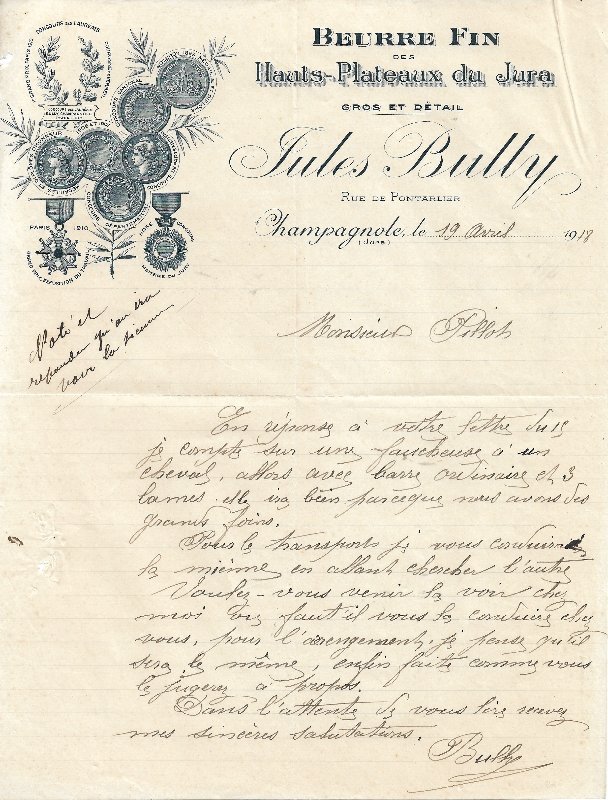 BEURRE FIN
DES
Hauts-Plateaux du Jura
GROS ET DÉTAIL
Jules Bully
RUE DE PONTARLIER
Champagnole, le 19 Avril 1918
(Jura)
PARIS 1910
Noté et
répondu qu'on ira
pour la
Monsieur Pillot
En réponse à votre lettre du 15
je compte sur une faucheuse à un
cheval, allors avec barre ordinaire et 3
lames. elle ira bien parceque nous avons des
grands foins.
Pour le transports je vous conduirai
la mienne en allant chercher l'autre
Voulez-vous venir la voir chez
moi ou faut il vous la conduire chez
vous, pour l'arengement, je pense qu'il
sera le même, enfin faite comme vous
le jugerez à propos.
Dans l'attente de vous lire recevez
mes sincères salutations.
Bully